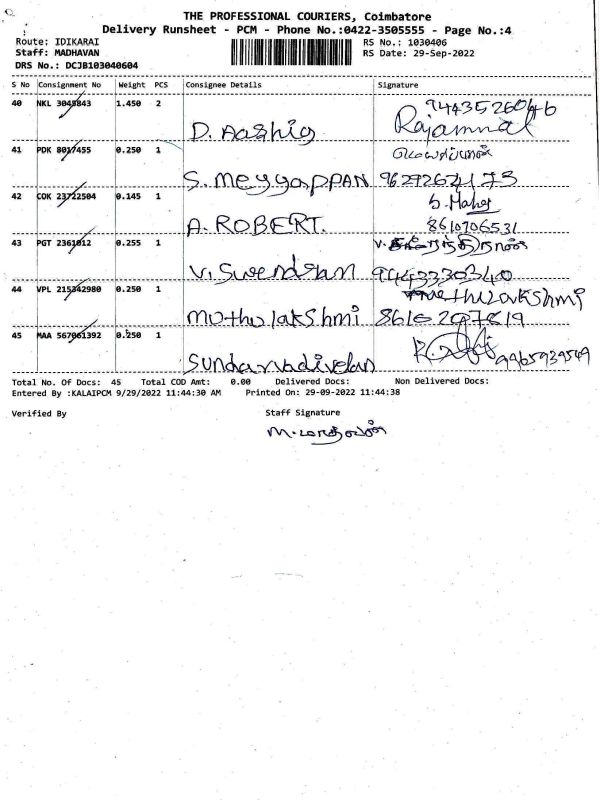 THE PROFESSIONAL COURIERS, Coimbatore
Delivery Runsheet - PCM - Phone No.:0422-3505555 - Page No.:4
Route: IDIKARAI RS No.: 1030406
Staff: MADHAVAN RS Date: 29-Sep-2022
DRS No.: DCJB103040604
S No Consignment No Weight PCS Consignee Details Signature
40 NKL 3045843 1.450 2 9443526046
D. Aashiq Rajammal
41 PDK 8017455 0.250 1 மெய்யப்பன்
S. Meyyappan 9629262473
42 COK 23722504 0.145 1 S. Mahes
A. ROBERT. 8610706531
43 PGT 2361012 0.255 1
V. Surendran 9443330340
44 VPL 215342980 0.250 1 Muthulakshmi
Muthulakshmi 8610297819
45 MAA 567061392 0.250 1
Sundaravadivelan 9965939549
Total No. Of Docs: 45 Total COD Amt: 0.00 Delivered Docs: Non Delivered Docs:
Entered By :KALAIPCM 9/29/2022 11:44:30 AM Printed On: 29-09-2022 11:44:38
Verified By Staff Signature
M. மாதவன்